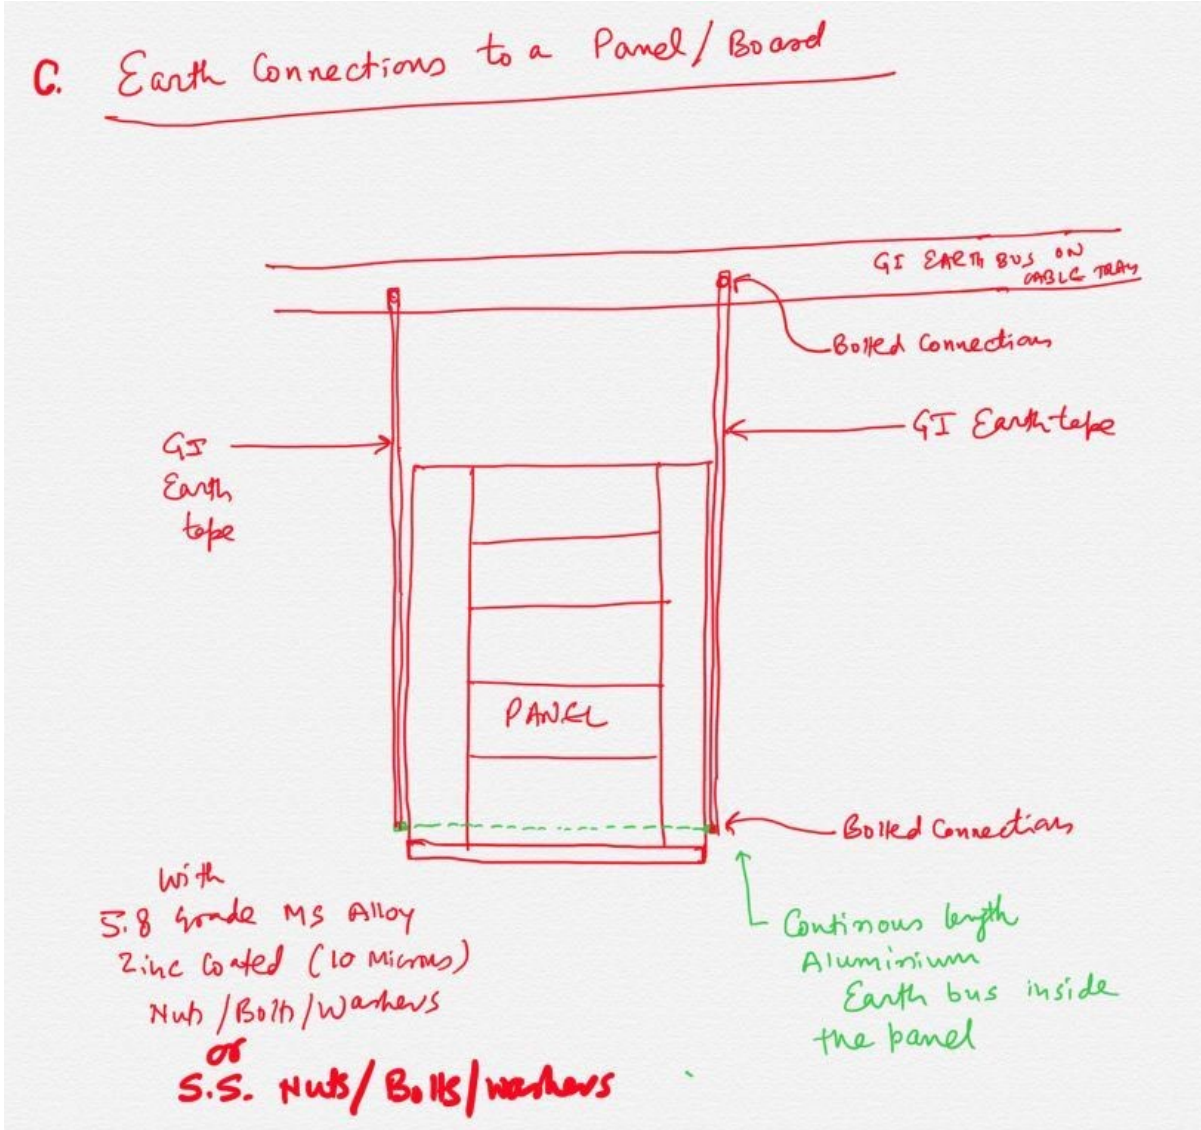 C. Earth Connections to a Panel/Board
GI EARTH BUS ON
CABLE TRAY
Bolted Connections
GI Earth tape
GI
Earth
tape
PANEL
Bolted Connections
With
5.8 Grade MS Alloy
Zinc Coated (10 Microns)
Nuts/Bolts/Washers
or
S.S. Nuts/Bolts/washers
Continous length
Aluminium
Earth bus inside
the panel